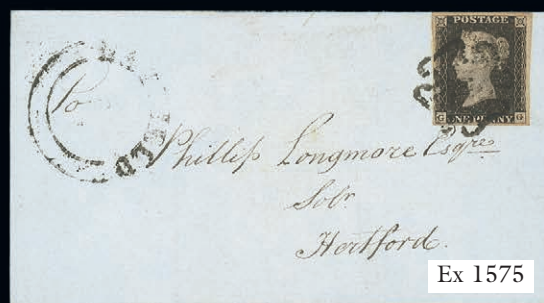 POSTAGE
ONE PENNY
To
Phillip Longmore Esqre
Solr
Hertford.
Ex 1575